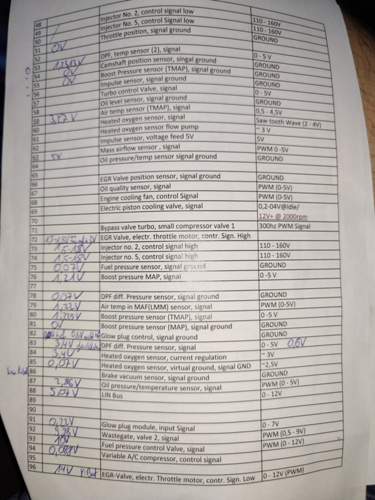 48 Injector No. 2, control signal low 110 - 160V
49 Injector No. 5, Control signal low 110 - 160V
50 Throttle position, signal ground GROUND
51
52 0V DPF, temp sensor (2), signal 0 - 5 V
53 Camshaft position sensor, singal ground GROUND
54 Boost Pressure sensor (TMAP), signal ground GROUND
55 Impulse sensor, signal ground GROUND
56 Turbo control Valve, signal 0 - 5V
57 Oil level sensor, signal ground GROUND
58 Air temp sensor (TMAP), signal 0,5 - 4,5V
59 Heated oxygen sensor, signal Saw tooth Wave (2 - 4V)
60 Heated oxygen sensor flow pump ~ 3 V
61 Impulse sensor, voltage feed 5V 5V
62 Mass airflow sensor, signal PWM 0 -5V
63 5V Oil pressure/temp sensor signal ground GROUND
64
65
66 EGR Valve position sensor, signal ground GROUND
67 Oil quality sensor, signal PWM (0-5V)
68 Engine cooling fan, control Signal PWM (0-5V)
69 Electric piston cooling valve, signal 0,2-04V@Idle/
70 12V+ @ 2000rpm
71 Bypass valve turbo, small compressor valve 1 300hz PWM Signal
72 EGR Valve, electr. throttle motor, contr. Sign. High
73 Injector no. 2, control signal high 110 - 160V
74 Injector no. 5, control signal high 110 - 160V
75 0,07V Fuel pressure sensor, signal ground GROUND
76 1,21V Boost pressure MAP, signal 0 -5 V
77
78 0,07V DPF diff. Pressure sensor, signal ground GROUND
79 Air temp in MAF(LMM) sensor, signal PWM (0-5V)
80 Boost pressure sensor (TMAP), signal 0 - 5V
81 0V Boost pressure sensor (MAP), signal ground GROUND
82 Glow plug control, signal ground GROUND
83 DPF diff. Pressure sensor, signal 0 - 5V 0,6V
84 Heated oxygen sensor, current regulation ~ 3V
85 Heated oxygen sensor, virtual ground, signal GND ~2,5V
86 Brake vacuum sensor, signal ground GROUND
87 Oil pressure/temperature sensor, signal PWM (0 - 5V)
88 LIN Bus 0 - 12V
89
90
91
92 Glow plug module, input Signal 0 - 7V
93 Wastegate, valve 2, signal PWM (0,5 - 9V)
94 Fuel pressure control Valve, signal PWM (0 - 12V)
95 Variable A/C compressor, control signal
96 EGR-Valve, electr. Throttle motor, contr. Sign. Low 0 - 12V (PWM)